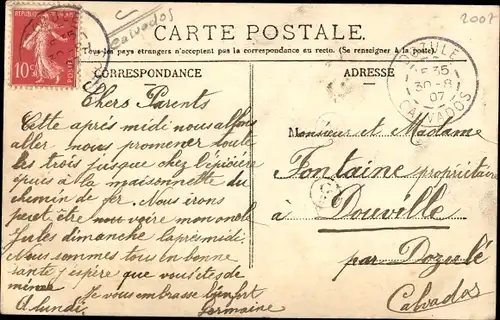 2007
Calvados
CARTE POSTALE.
Tous les pays étrangers n'acceptent pas la correspondance au recto. (Se renseigner à la poste).
CORRESPONDANCE
ADRESSE
10c
DOZULÉ
35
30-8
07
CALVADOS
Chers Parents
Cette après midi nous allons
aller nous promener toute
les trois jusque chez l'épicière
puis a la maisonnette du
chemin de fer. Nous irons
peut être voire mon oncle
Jules dimanche l'aprèsmidi.
Nous sommes tous en bonne
santé j'espère que vous êtes de
même
Je vous embrasse bien fort
A lundi.
Germaine
Monsieur et Madame
Fontaine propriétaire
à Douville
par Dozulé
Calvados